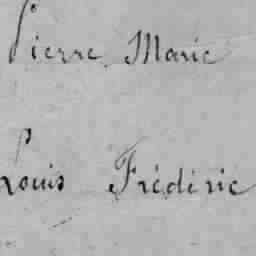 Pierre Marie
Louis Frédéric